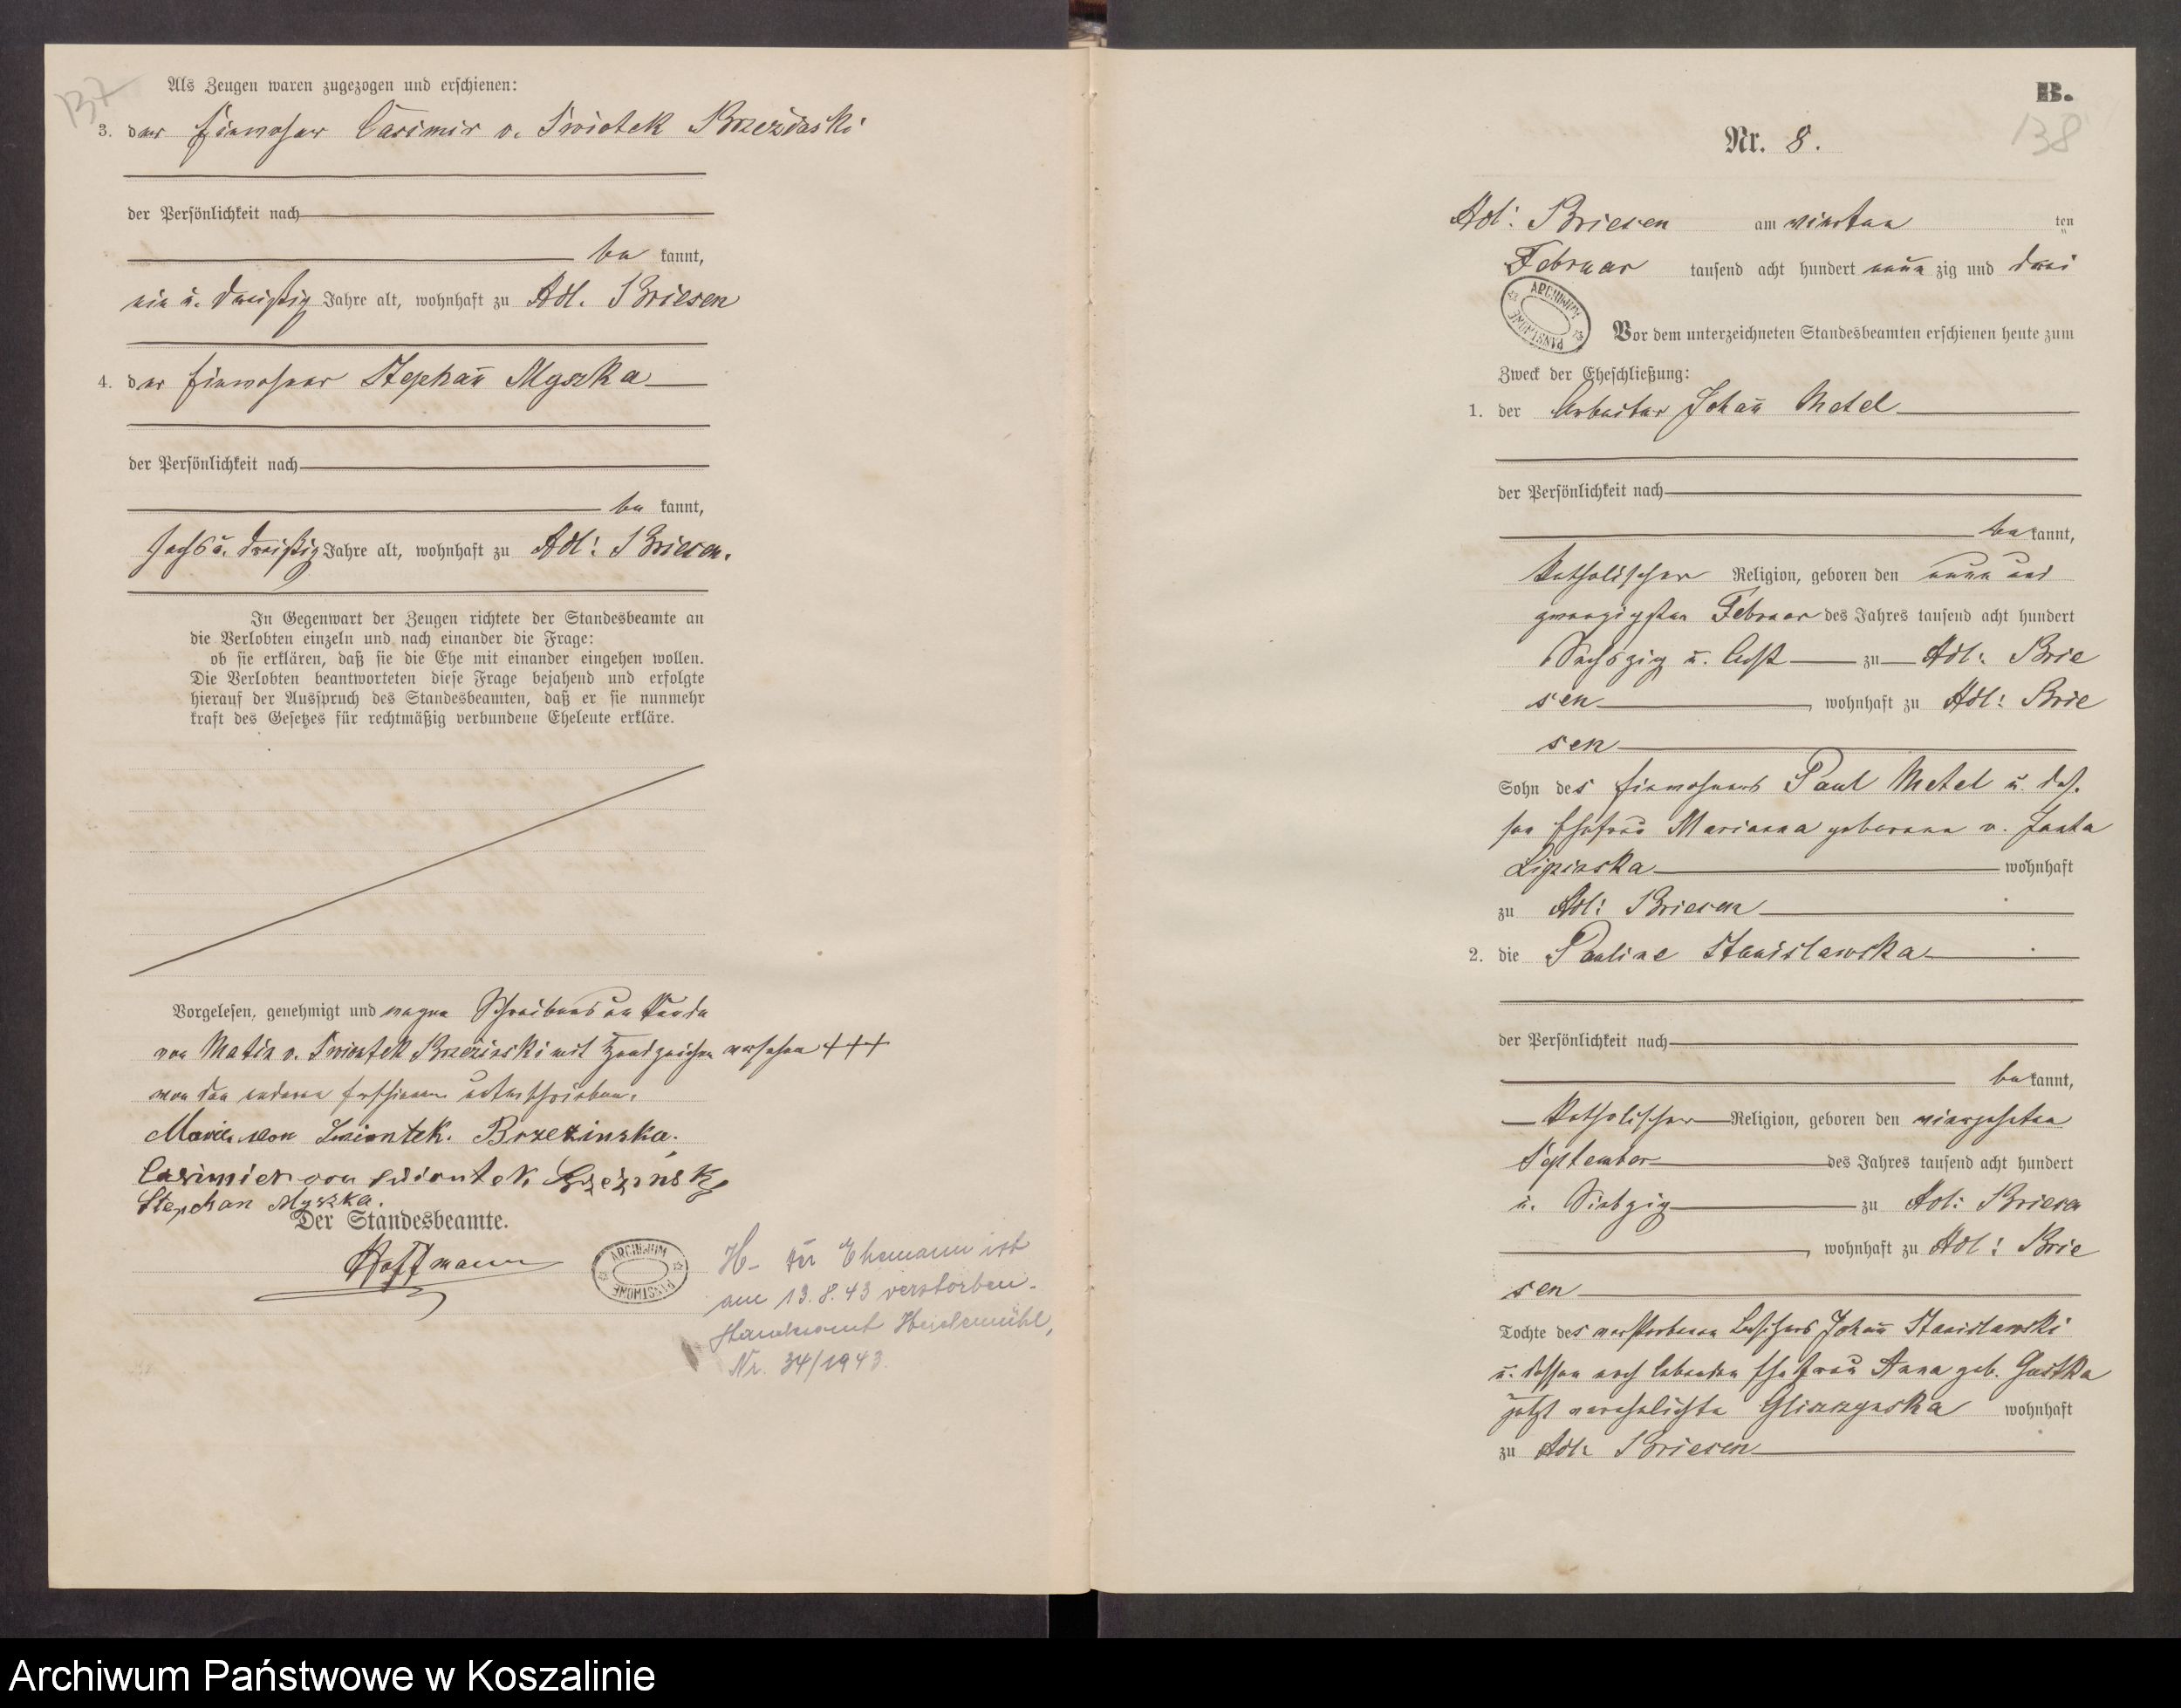 137
Als Zeugen waren zugezogen und erschienen:
3. der Einwohner Casimir v. Swiotek Brzezinski
der Persönlichkeit nach
be kannt,
ein u. dreißig Jahre alt, wohnhaft zu Adl. Briesen
4. der Einwohner Stephan̄ Myszka
der Persönlichkeit nach
be kannt,
sechs u. dreißig Jahre alt, wohnhaft zu Adl: Briesen.
In Gegenwart der Zeugen richtete der Standesbeamte an
die Verlobten einzeln und nach einander die Frage:
ob sie erklären, daß sie die Ehe mit einander eingehen wollen.
Die Verlobten beantworteten diese Frage bejahend und erfolgte
hierauf der Ausspruch des Standesbeamten, daß er sie nunmehr
kraft des Gesetzes für rechtmäßig verbundene Eheleute erkläre.
Vorgelesen, genehmigt und wegen Schreibens un Kunde
von v. Brzezinski mit Handzeichen versehen +++
von den anderen Erschienen unterschrieben.
von Brzezinska.
Casimier von
Stephan Myszka.
Der Standesbeamte.
Hoffmann
ARCHIWUM PAŃSTWOWE
H- Der Ehemann ist
am 13.8.43 verstorben.
Standesamt Heidemühl,
Nr. 34/1943.
B.
138
Nr. 8.
Adl: Briesen am vierten ten
Februar tausend acht hundert neun zig und drei
ARCHIWUM PAŃSTWOWE
Vor dem unterzeichneten Standesbeamten erschienen heute zum
Zweck der Eheschließung:
1. der Arbeiter Johan̄ Metel
der Persönlichkeit nach
be kannt,
katholischer Religion, geboren den neun und
zwanzigsten Februar des Jahres tausend acht hundert
Sechszig u. Acht zu Adl: Brie
sen, wohnhaft zu Adl: Brie
sen
Sohn des Einwohners Paul Metel u. des.
sen Ehefrau Marianna geborene v. Janta
Lipinska wohnhaft
zu Adl: Briesen
2. die Pauline Stanislawska
der Persönlichkeit nach
be kannt,
katholischer Religion, geboren den vierzehnten
September des Jahres tausend acht hundert
u. Siebzig zu Adl: Briesen
, wohnhaft zu Adl: Brie
sen
Tochte des verstorbenen Besitzers Johan̄ Stanislawski
u. dessen noch lebenden Ehefrau Anna geb.
jetzt verehelichte wohnhaft
zu Adl: Briesen
Archiwum Państwowe w Koszalinie